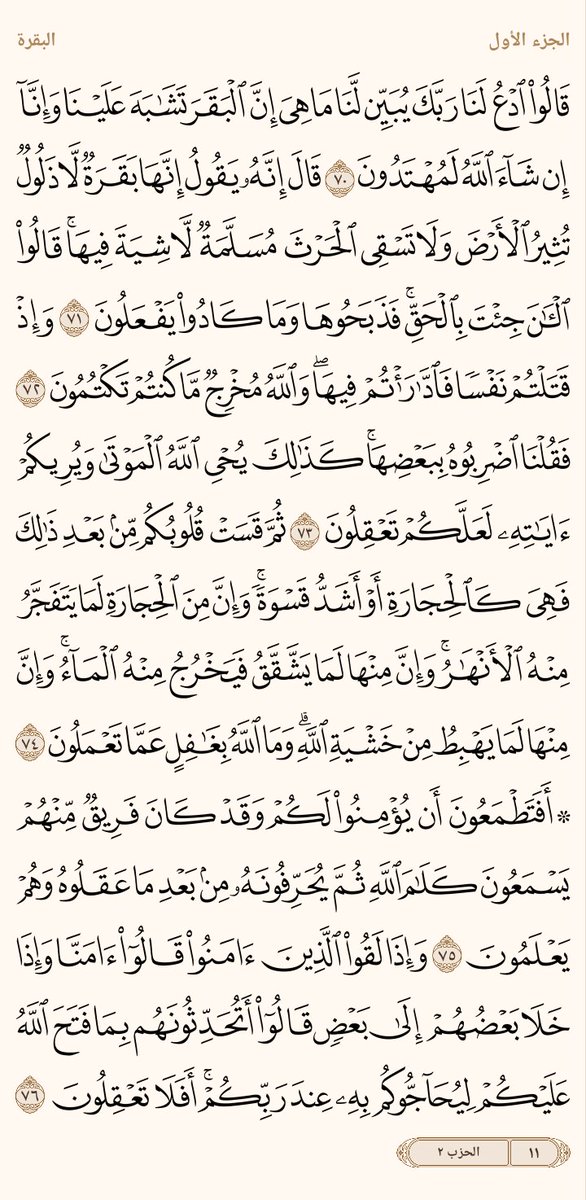 الجزء الأول
البقرة
قَالُوا۟ ٱدْعُ لَنَا رَبَّكَ يُبَيِّن لَّنَا مَا هِىَ إِنَّ ٱلْبَقَرَ تَشَـٰبَهَ عَلَيْنَا وَإِنَّآ
إِن شَآءَ ٱللَّهُ لَمُهْتَدُونَ ٧٠ قَالَ إِنَّهُۥ يَقُولُ إِنَّهَا بَقَرَةٌ لَّا ذَلُولٌ
تُثِيرُ ٱلْأَرْضَ وَلَا تَسْقِى ٱلْحَرْثَ مُسَلَّمَةٌ لَّا شِيَةَ فِيهَا ۚ قَالُوا۟
ٱلْـَٔـٰنَ جِئْتَ بِٱلْحَقِّ ۚ فَذَبَحُوهَا وَمَا كَادُوا۟ يَفْعَلُونَ ٧١ وَإِذْ
قَتَلْتُمْ نَفْسًا فَٱدَّٰرَْٰٔتُمْ فِيهَا ۖ وَٱللَّهُ مُخْرِجٌ مَّا كُنتُمْ تَكْتُمُونَ ٧٢
فَقُلْنَا ٱضْرِبُوهُ بِبَعْضِهَا ۚ كَذَٰلِكَ يُحْىِ ٱللَّهُ ٱلْمَوْتَىٰ وَيُرِيكُمْ
ءَايَـٰتِهِۦ لَعَلَّكُمْ تَعْقِلُونَ ٧٣ ثُمَّ قَسَتْ قُلُوبُكُم مِّنۢ بَعْدِ ذَٰلِكَ
فَهِىَ كَٱلْحِجَارَةِ أَوْ أَشَدُّ قَسْوَةً ۚ وَإِنَّ مِنَ ٱلْحِجَارَةِ لَمَا يَتَفَجَّرُ
مِنْهُ ٱلْأَنْهَـٰرُ ۚ وَإِنَّ مِنْهَا لَمَا يَشَّقَّقُ فَيَخْرُجُ مِنْهُ ٱلْمَآءُ ۚ وَإِنَّ
مِنْهَا لَمَا يَهْبِطُ مِنْ خَشْيَةِ ٱللَّهِ ۗ وَمَا ٱللَّهُ بِغَـٰفِلٍ عَمَّا تَعْمَلُونَ ٧٤
۞ أَفَتَطْمَعُونَ أَن يُؤْمِنُوا۟ لَكُمْ وَقَدْ كَانَ فَرِيقٌ مِّنْهُمْ
يَسْمَعُونَ كَلَـٰمَ ٱللَّهِ ثُمَّ يُحَرِّفُونَهُۥ مِنۢ بَعْدِ مَا عَقَلُوهُ وَهُمْ
يَعْلَمُونَ ٧٥ وَإِذَا لَقُوا۟ ٱلَّذِينَ ءَامَنُوا۟ قَالُوٓا۟ ءَامَنَّا وَإِذَا
خَلَا بَعْضُهُمْ إِلَىٰ بَعْضٍ قَالُوٓا۟ أَتُحَدِّثُونَهُم بِمَا فَتَحَ ٱللَّهُ
عَلَيْكُمْ لِيُحَآجُّوكُم بِهِۦ عِندَ رَبِّكُمْ ۚ أَفَلَا تَعْقِلُونَ ٧٦
١١ الحزب ٢